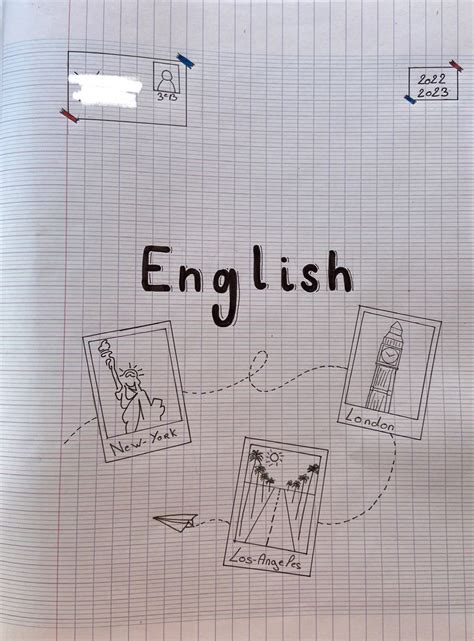 3eB
2022
2023
English
New-York
London
Los-Angeles